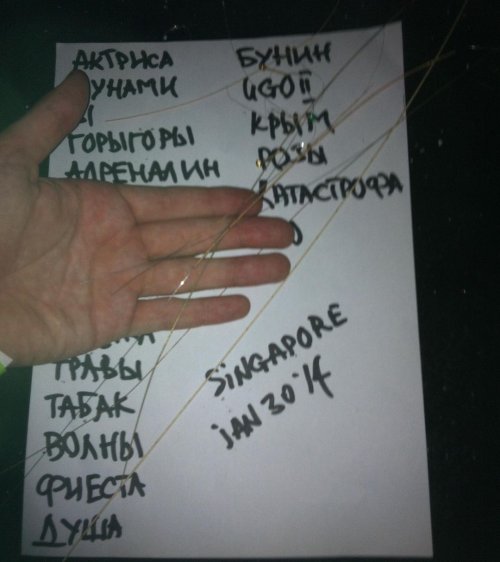 АКТРИСА
УНАМИ
ГОРЫГОРЫ
АДРЕНАЛИН
ТРАВЫ
ТАБАК
ВОЛНЫ
ФИЕСТА
ДУША
БУНИН
UGOЙ
КРЫМ
РОЗЫ
КАТАСТРОФА
SINGAPORE
JAN 30 '14